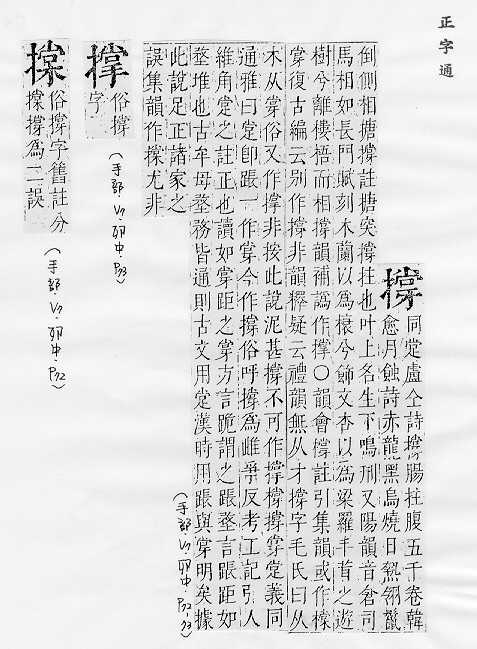 正字通
撐
同盧仝詩撐腸拄腹五千卷韓
愈月蝕詩赤龍黑烏燒日熱翎鬣
倒側相搪撐註搪突撐拄也叶上名生下鳴刑又陽韻音倉司
馬相如長門賦刻木蘭以爲榱兮飾文杏以爲梁羅丰茸之遊
樹兮離樓梧而相撐韻補譌作撑〇韻會撐註引集韻或作橕
牚復古編云別作撐非韻釋疑云禮韻無从才撐字毛氏曰从
木从牚俗又作撑非按此說泥甚撐不可作橕撐牚義同
通雅曰卽䟫一作牚今作撐俗呼撐爲雌爭反考工記引人
維角之註正也讀如牚距之牚方言謂之䟫堥言䟫距如
堥堆也古牟母堥務皆通則古文用漢時用䟫與牚明矣據
此說足正諸家之
誤集韻作尤非
(手部 V7 卯中, P72-73)
撑
俗撐
字
(手部 V7 卯中, P73)
俗撐字舊註分
撐爲二誤
(手部 V7 卯中 P72)